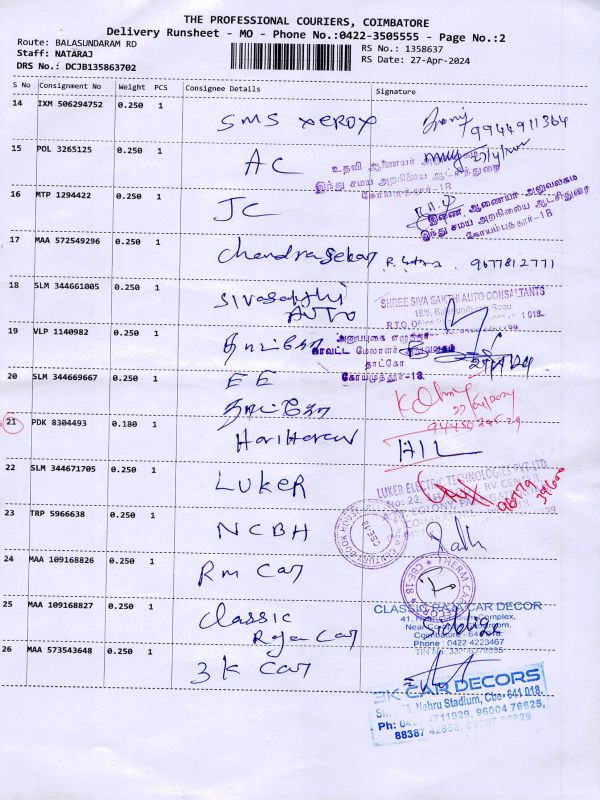 THE PROFESSIONAL COURIERS, COIMBATORE
Delivery Runsheet - MO - Phone No.:0422-3505555 - Page No.:2
Route: BALASUNDARAM RD
Staff: NATARAJ
DRS No.: DCJB135863702
RS No.: 1358637
RS Date: 27-Apr-2024
S No Consignment No Weight PCS Consignee Details Signature
14 IXM 506294752 0.250 1 SMS XEROX 9944911364
15 POL 3265125 0.250 1 AC
உதவி ஆணையர் அலுவலகம்
இந்து சமய அறநிலைய ஆட்சித்துறை
கோயமுத்தூர்-18
16 MTP 1294422 0.250 1 JC
இணை ஆணையர் அலுவலகம்
இந்து சமய அறநிலைய ஆட்சிதுறை
கோயம்புத்தூர்-18
17 MAA 572549296 0.250 1 Chandrasekar 9677812771
18 SLM 344661005 0.250 1 Sivasakthi
AUTO
SHREE SIVA SAKTHI AUTO CONSULTANTS
19/5, Balasundaram Road
19 VLP 1140982 0.250 1 தாட்கோ
மாவட்ட மேலாளர் அலுவலகம்
தாட்கோ
கோயமுத்தூர்-18
20 SLM 344669667 0.250 1 EE
தாட்கோ
21 PDK 8304493 0.180 1 Hariharan HIL
22 SLM 344671705 0.250 1 LUKER
LUKER ELECTRIC TECHNOLOGIES PVT LTD
23 TRP 5966638 0.250 1 NCBH
24 MAA 109168826 0.250 1 Rm Car
25 MAA 109168827 0.250 1 Classic
Raja Car
CLASSIC RAJA CAR DECOR
Coimbatore - 641 018
Phone : 0422 4223467
26 MAA 573543648 0.250 1 3K Car
3K CAR DECORS
Nehru Stadium, Cbe-641 018.
4711929, 95004 76625,